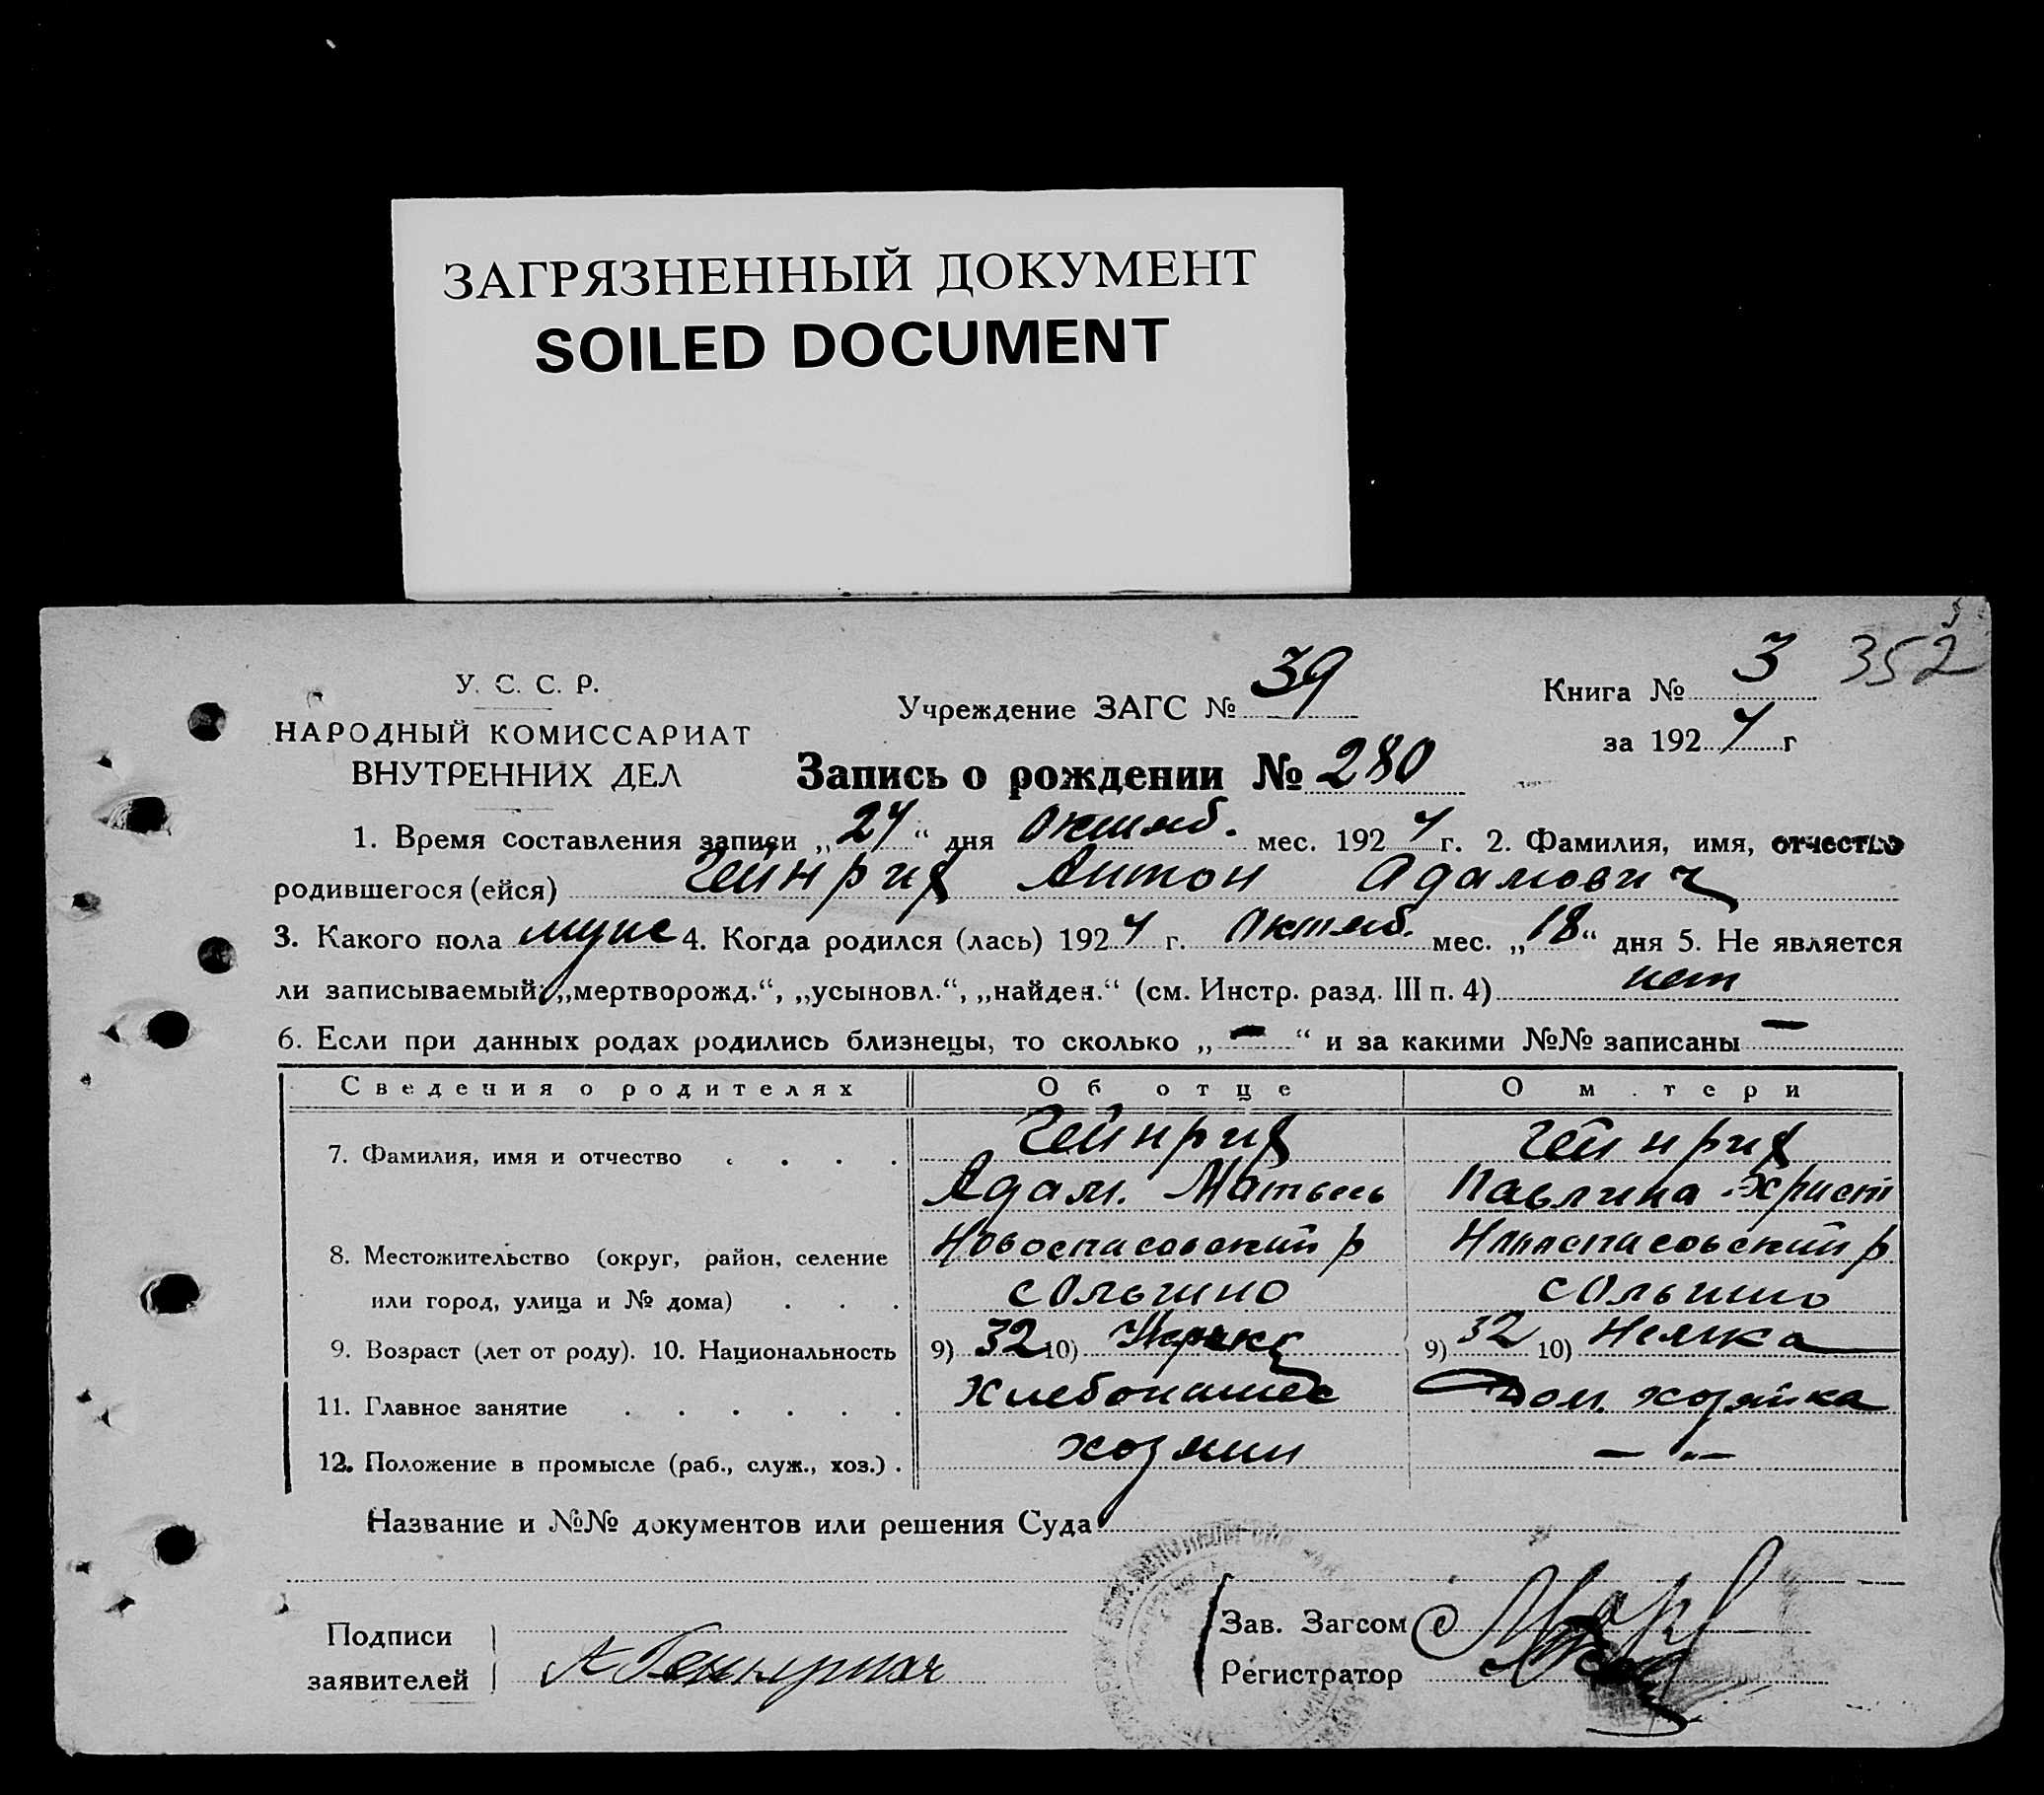 ЗАГРЯЗНЕННЫЙ ДОКУМЕНТ
SOILED DOCUMENT
352
У. С. С. Р.
НАРОДНЫЙ КОМИССАРИАТ
ВНУТРЕННИХ ДЕЛ
Учреждение ЗАГС № 39
Книга № 3
за 1927 г
Запись о рождении № 280
1. Время составления записи „27“ дня Октяб. мес. 1927 г. 2. Фамилия, имя, отчество
родившегося (ейся) Гейнрих Антон Адамович
3. Какого пола муж 4. Когда родился (лась) 1927 г. Октяб. мес. „18“ дня 5. Не является
ли записываемый: „мертворожд.“, „усыновл.“, „найден.“ (см. Инстр. разд. III п. 4) нет
6. Если при данных родах родились близнецы, то сколько „—“ и за какими №№ записаны —
Сведения о родителях Об отце О м.тери
7. Фамилия, имя и отчество . . . . Гейнрих Гейнрих
Адам. Павлина Христ
8. Местожительство (округ, район, селение Новоспасовский р Новоспасовский р
или город, улица и № дома) . . . с Ольгино с Ольгино
9. Возраст (лет от роду). 10. Национальность 9) 32 10) 9) 32 10) Немка
11. Главное занятие . . . . . . Хлебопашес Дом. хозяйка
12. Положение в промысле (раб., служ., хоз.) . хозяин — „ —
Название и №№ документов или решения Суда
Подписи
заявителей
Зав. Загсом
Регистратор